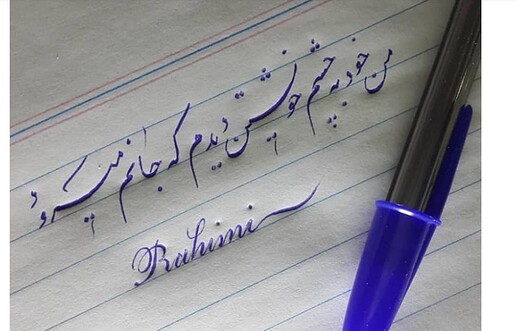 من خود به چشم خویشتن دیدم که جانم میرود
Rahimi